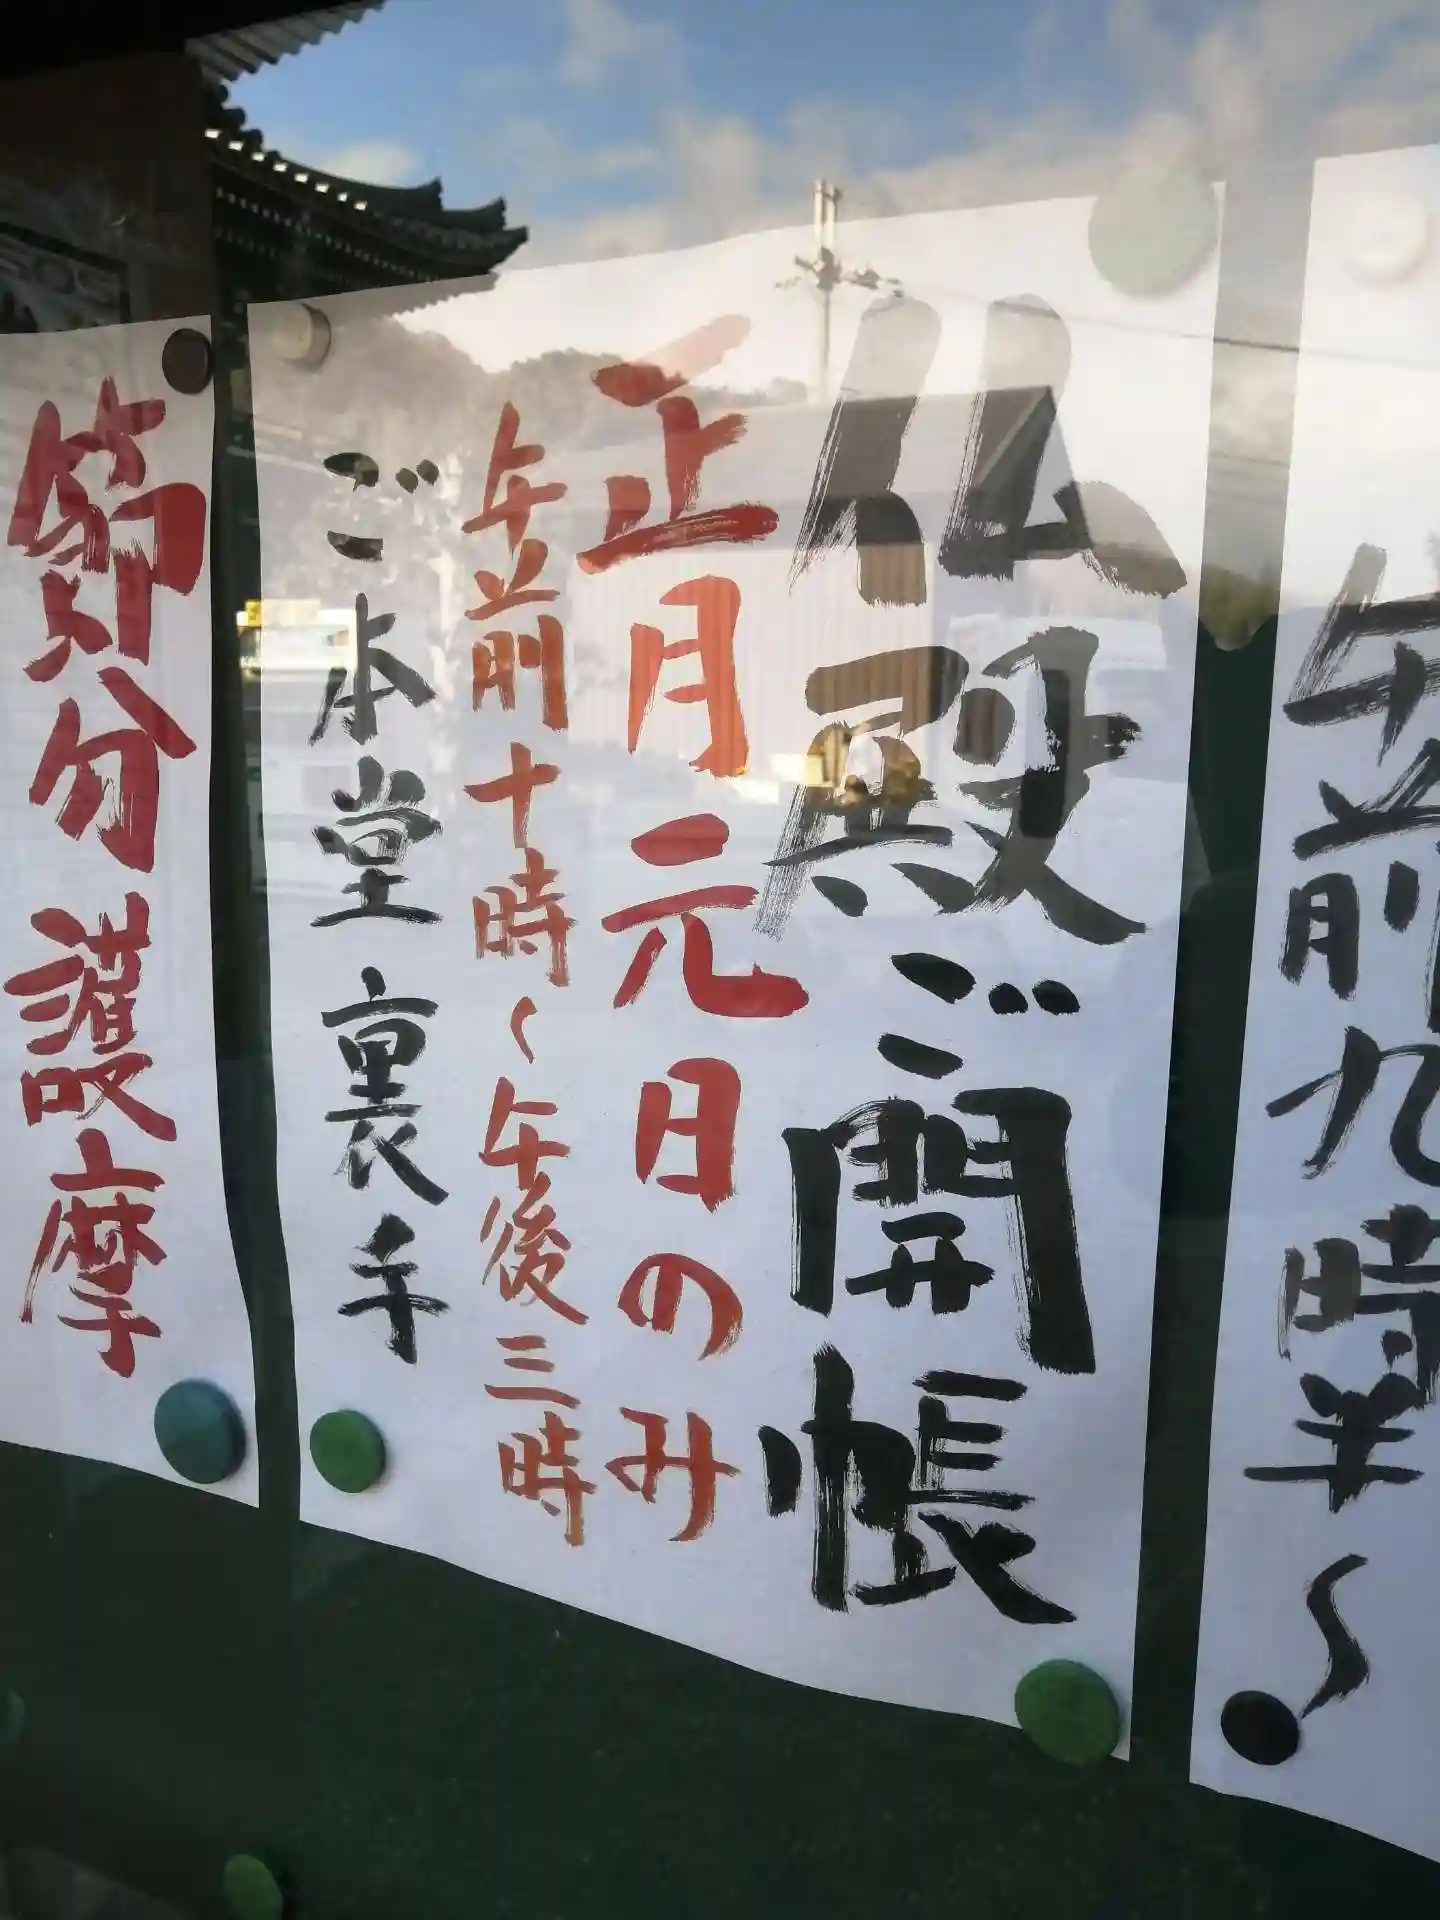 午前九時半〜
仏殿ご開帳
正月元日のみ
午前十時〜午後三時
ご本堂裏手
節分護摩